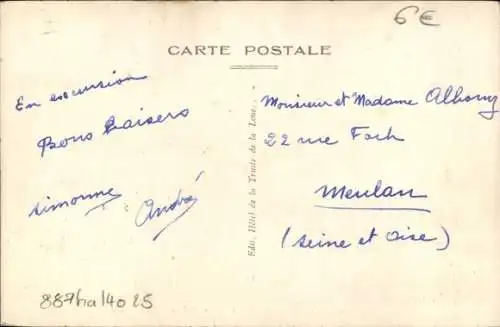 6€
CARTE POSTALE
En excursion
Bons baisers
Simonne
André
Monsieur et Madame Albony
22 rue Foch
Meulan
(Seine et Oise)
Edit. Hôtel de la Truite de la Loue.
887ha/4025